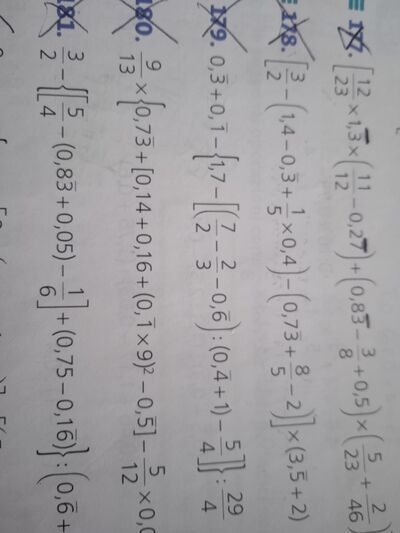 177. [12/23 × 1,3̅ × (11/12 − 0,27̅) + (0,83̅ − 3/8 + 0,5) × (5/23 + 2/46)
178. [3/2 − (1,4 − 0,3̅ + 1/5 × 0,4) − (0,73̅ + 8/5 − 2)] × (3,5̅ + 2)
179. 0,3̅ + 0,1̅ − {1,7 − [(7/2 − 2/3 − 0,6̅) : (0,4̅ + 1) − 5/4]} : 29/4
180. 9/13 × {0,73̅ + [0,14 + 0,16 + (0,1̅ × 9)² − 0,5̅] − 5/12 × 0,0
181. 3/2 − {[5/4 − (0,83̅ + 0,05) − 1/6] + (0,75 − 0,16̅)} : (0,6̅ +